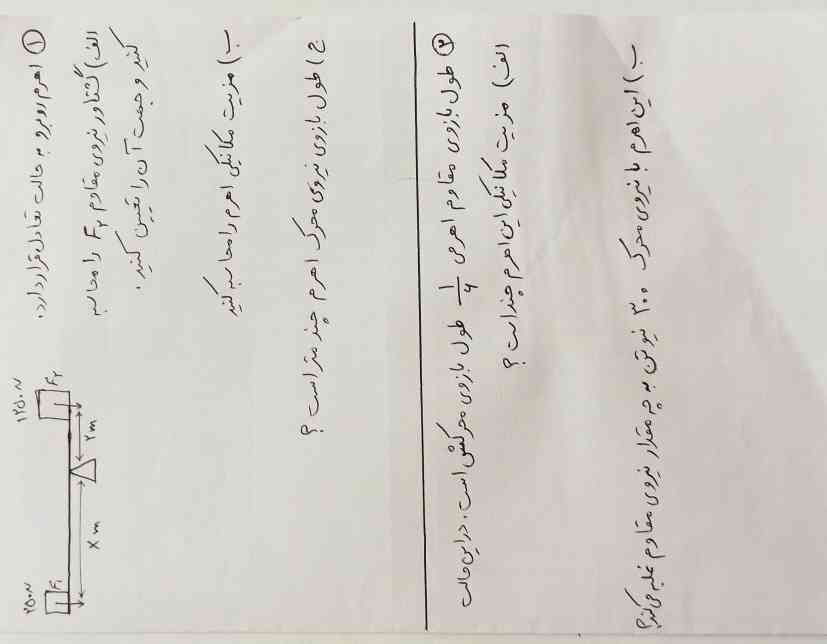 ① اهرم روبرو به حالت تعادل قرار دارد.
الف) گشتاور نیروی مقاوم F۲ را محاسبه
کنید و جهت آن را تعیین کنید.
۲۵۰N
۱۲۵۰N
F۱
F۲
X m
۲ m
ب) مزیت مکانیکی اهرم را محاسبه کنید
ج) طول بازوی نیروی محرک اهرم چند متر است ؟
② طول بازوی مقاوم اهرمی ۱/۶ طول بازوی محرکش است. در این حالت
الف) مزیت مکانیکی این اهرم چند است ؟
ب) این اهرم با نیروی محرک ۳۰۰ نیوتن به چه مقدار نیروی مقاوم غلبه می‌کند؟